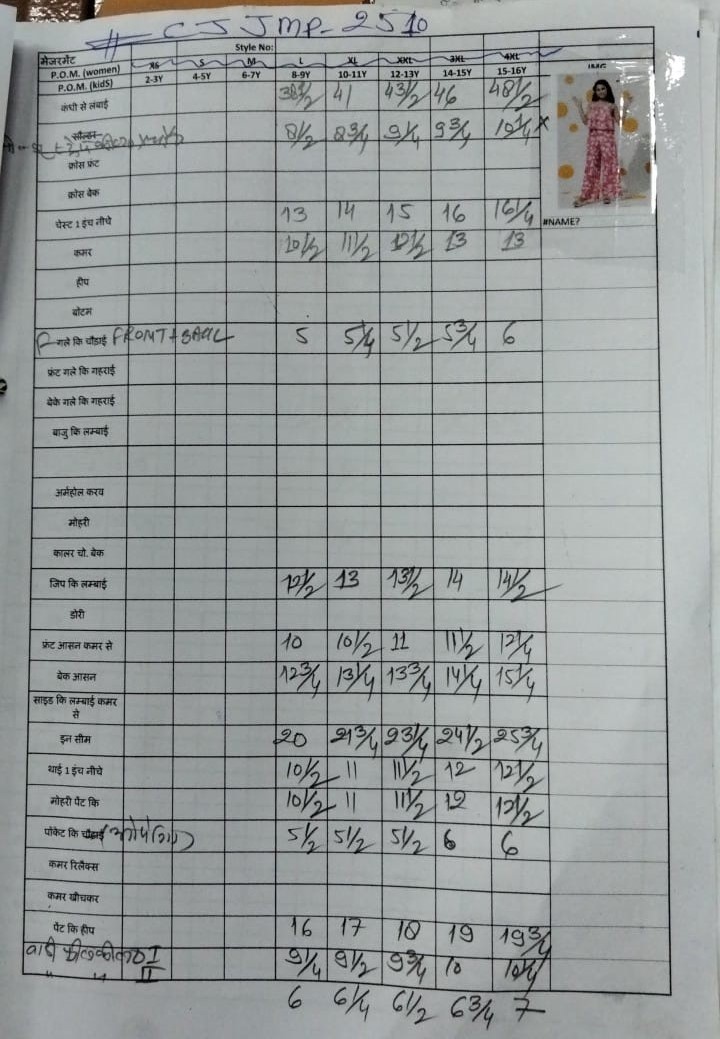 # CJJMP-2510
Style No:
मेजरमेंट
P.O.M. (women) XS S M L XL XXL 3XL 4XL IMG
P.O.M. (kidS) 2-3Y 4-5Y 6-7Y 8-9Y 10-11Y 12-13Y 14-15Y 15-16Y
कंधी से लंबाई 38 1/2 41 43 1/2 46 48 1/2
सोल्डर 8 1/2 8 3/4 9 1/4 9 3/4 10 1/4 x
क्रोस फ्रंट
क्रोस बेक
चेस्ट 1 इंच नीचे 13 14 15 16 16 1/4 #NAME?
कमर 10 1/2 11 1/2 12 1/2 13 13
हीप
बोटम
गले कि चौडाई FRONT + BACK 5 5 1/4 5 1/2 5 3/4 6
फ्रंट गले कि गहराई
बेके गले कि गहराई
बाजु कि लम्बाई
अर्महोल करव
मोहरी
कालर चो. बेक
जिप कि लम्बाई 12 1/2 13 13 1/2 14 14 1/2
डोरी
फ्रंट आसन कमर से 10 10 1/2 11 11 1/2 12 1/4
बेक आसन 12 3/4 13 1/4 13 3/4 14 1/4 15 1/4
साइड कि लम्बाई कमर
से
इन सीम 20 21 3/4 23 1/4 24 1/2 25 3/4
थाई 1 इंच नीचे 10 1/2 11 11 1/2 12 12 1/2
मोहरी पेंट कि 10 1/2 11 11 1/2 12 12 1/2
पॉकेट कि चौडाई 5 1/2 5 1/2 5 1/2 6 6
कमर रिलैक्स
कमर खीचकर
पेंट कि हीप 16 17 18 19 19 3/4
I 9 1/4 9 1/2 9 3/4 10 10 1/4
" " II 6 6 1/4 6 1/2 6 3/4 7